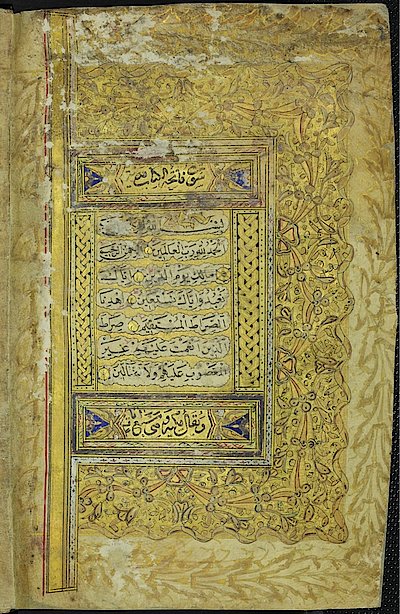 سورة فاتحة الكتاب
بسم الله
الحمد لله رب العالمين الرحمن الرحيم
مالك يوم الدين اياك
نعبد واياك نستعين اهدنا
الصراط المستقيم صراط
الذين انعمت عليهم غير
المغضوب عليهم ولا الضالين
مكية وهي